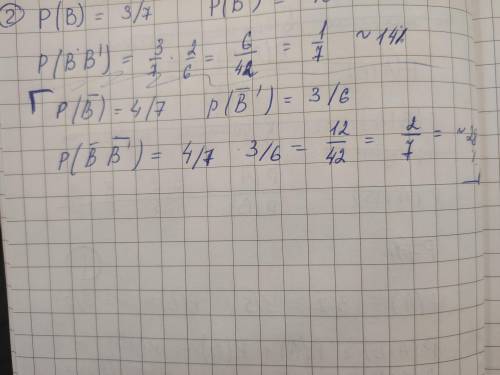 ② P(B) = 3/7 P(B') =
P(B B') = 3/7 · 2/6 = 6/42 = 1/7 ≈ 142
Γ P(B̅) = 4/7 P(B̅') = 3/6
P(B̅ B̅') = 4/7 · 3/6 = 12/42 = 2/7 =